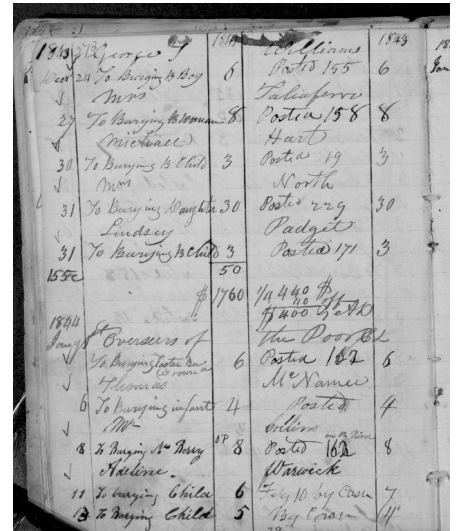 1843 273 George S 1843 Williams 1843
Decr 24 To Burying B Boy 6 Posted 155 6
Mrs Taliaferro
27 To Burying B Woman 8 Posted 158 8
Michael Hart
30 To Burying B Child 3 Posted 19 3
Mrs North
31 To Burying Daughter 30 Posted 229 30
Lindsey Padget
31 To Burying B Child 3 Posted 171 3
155 50
$ 1760 1/4 440 $
40 off
$ 400
1844
Jany Overseers of the Poor
To Burying 6 Posted 162 6
Thomas McNamee
6 To Burying infant 4 Posted 4
Mr Collins
8 To Burying Mrs Berry 8 Posted 162 8
Adeline Warwick
11 To burying Child 6 Feby 10 by Cash 7
13 To Burying Child 5 By Cash 4